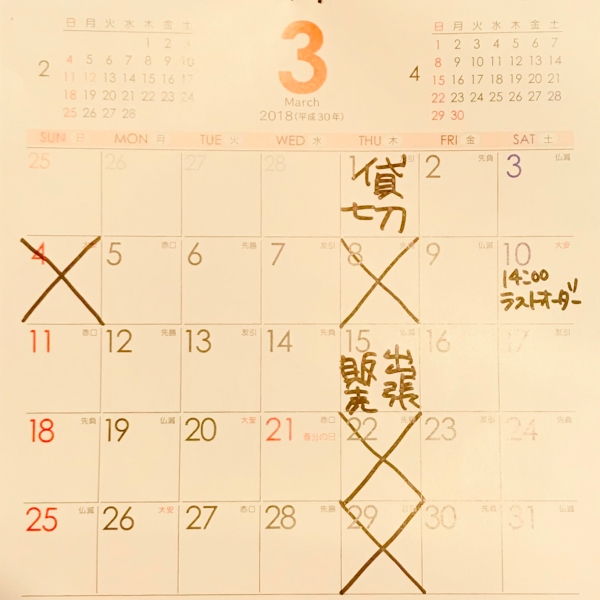 3
March
2018(平成30年)
2
日 月 火 水 木 金 土
1 2 3
4 5 6 7 8 9 10
11 12 13 14 15 16 17
18 19 20 21 22 23 24
25 26 27 28
4
日 月 火 水 木 金 土
1 2 3 4 5 6 7
8 9 10 11 12 13 14
15 16 17 18 19 20 21
22 23 24 25 26 27 28
29 30
SUN 日 MON 月 TUE 火 WED 水 THU 木 FRI 金 SAT 土
25 26 27 28 1 2 先負 3 仏滅
貸
七刀
4 5 赤口 6 先勝 7 友引 8 9 仏滅 10 大安
14:00
ラストオーダー
11 赤口 12 先勝 13 友引 14 先負 15 仏滅 16 17
出張
販売
18 先負 19 仏滅 20 大安 21 赤口 22 先勝 23 友引 24 先負
春分の日
25 仏滅 26 大安 27 赤口 28 先勝 29 友引 30 先負 31 仏滅